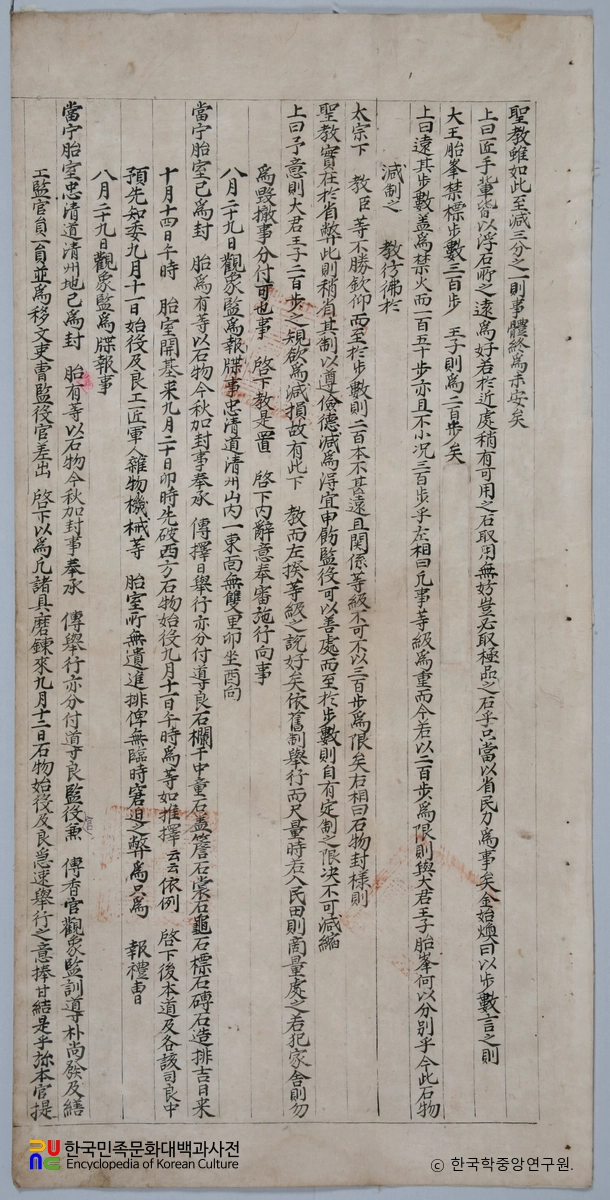 聖教雖如此至減三分之一則事體終爲未安矣
上曰匠手輩皆以浮石所之遠爲好若於近處稍有可用之石取用無妨豈必取極品之石乎只當以省民力爲事矣金始煥曰以步數言之則
大王胎峯禁標步數三百步 王子則爲二百步矣
上曰遠其步數盖爲禁火而一百五十步亦且不小况三百步乎左相曰凡事等級爲重而今若以二百步爲限則與大君王子胎峯何以分别乎今此石物
減制之 教彷彿於
太宗下 教臣等不勝欽仰而至於步數則二百本不甚遠且関係等級不可不以三百步爲限矣右相曰石物封樣則
聖教實在於省弊此則稍省其制以遵儉德減爲得宜申飭監役可以善處而至於步數則自有定制之限决不可減縮
上曰予意則大君王子二百步之規欲爲減損故有此下 教而左揆等級之說好矣依舊制舉行而尺量時若入民田則商量處之若犯家舎則勿
爲毀撤事分付可也事 啓下教是置 啓下内辭意奉審施行向事
八月二十九日觀象監爲報牒事忠清道清州山内一東面無雙里卯坐酉向
當宁胎室已爲封 胎爲有等以石物今秋加封事奉承 傳擇日舉行亦分付道等良石欄干中童石盖簷石裳石龜石標石磚石造排吉日来
十月十四日午時 胎室開基来九月二十日卯時先破西方石物始役九月十一日午時爲等如推擇云云依例 啓下後本道及各該司良中
預先知委九月十一日始役及良工匠軍人雜物機械等 胎室所無遺進排俾無臨時窘迫之弊爲只爲 報禮曹
八月二十九日觀象監爲牒報事
當宁胎室忠清道清州地已爲封 胎有等以石物今秋加封事奉承 傳舉行亦分付道等良監役兼 傳香官觀象監訓導朴尚發及繕
工監官員一員並爲移文吏曹監役官差出 啓下以爲凡諸具磨鍊來九月十二日石物始役及良急速舉行之意捧甘結是乎旀本官提
한국민족문화대백과사전
Encyclopedia of Korean Culture
© 한국학중앙연구원.